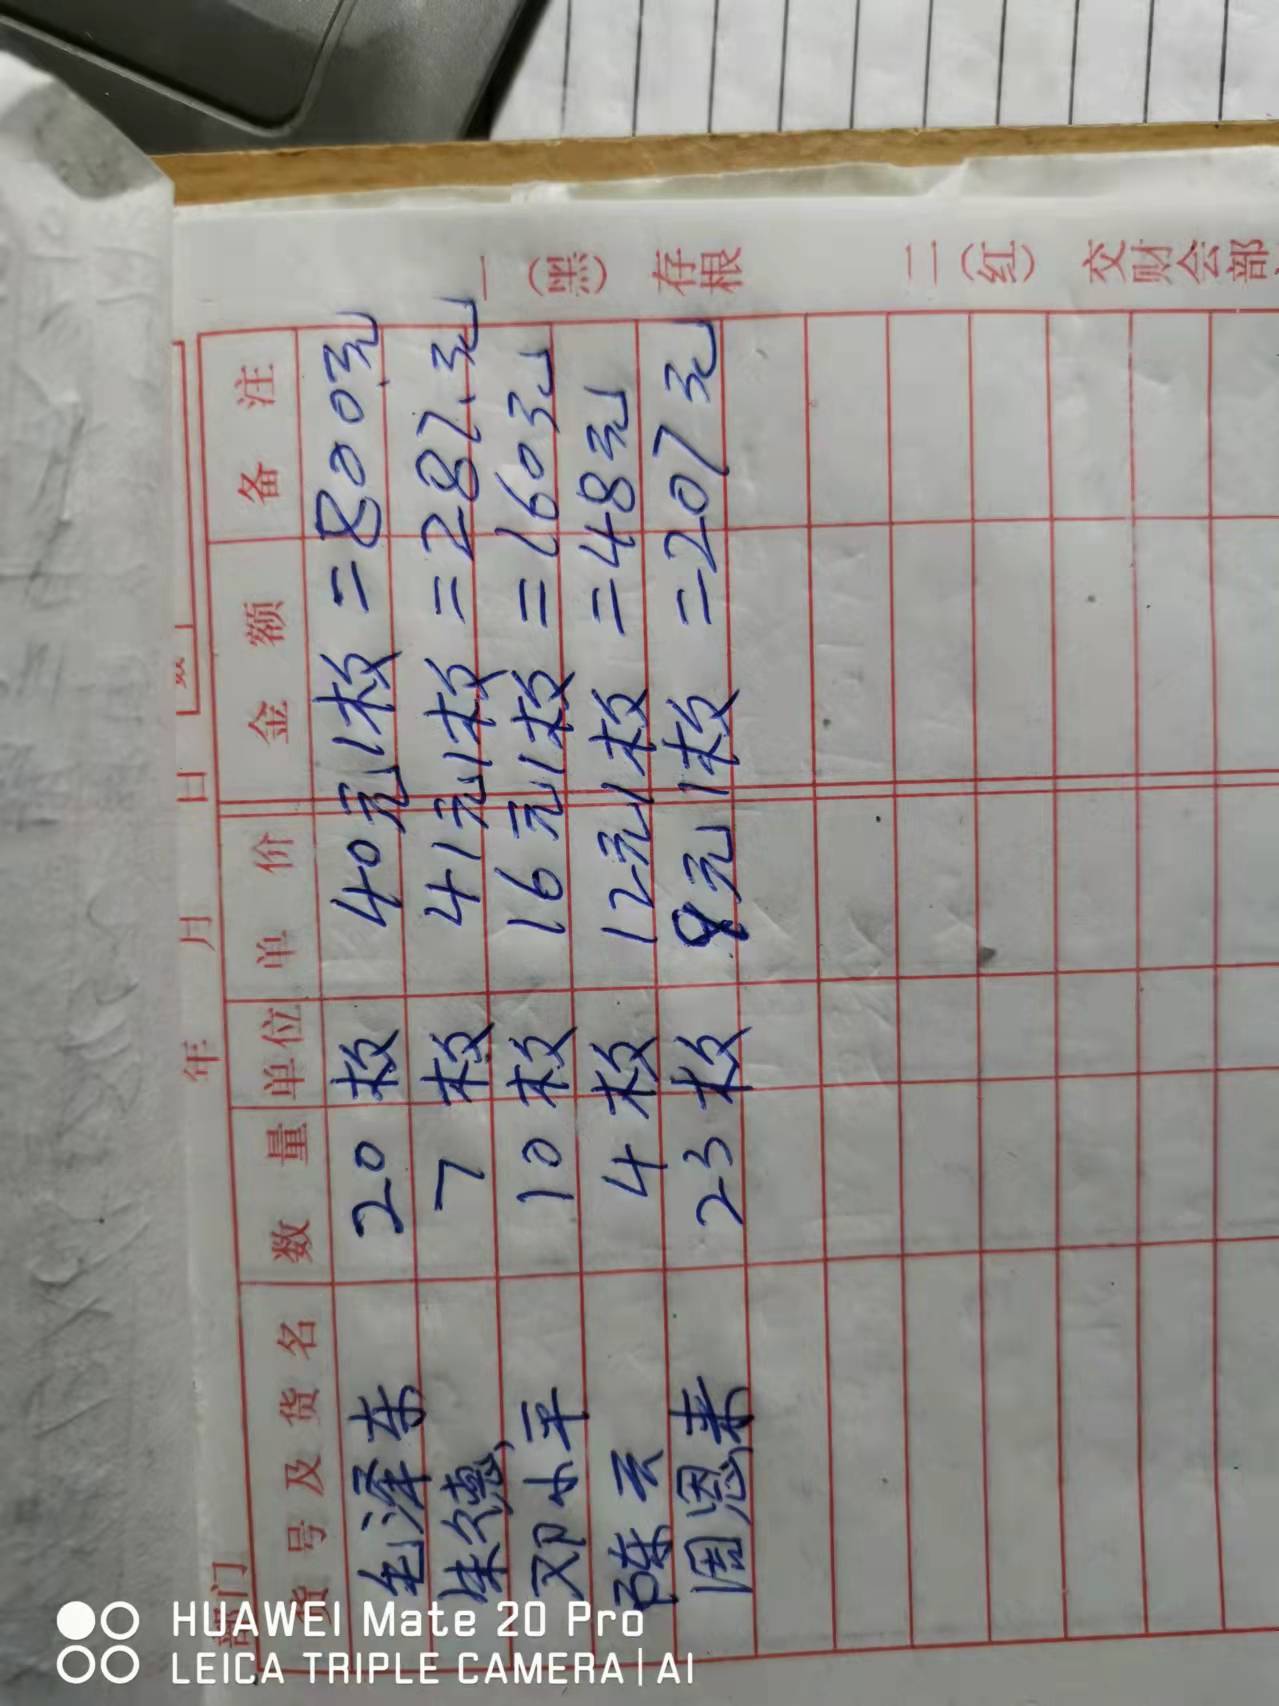 部门
年 月 日
货号及货名 数量 单位 单价 金额 备注
毛泽东 20 枚 40元1枚 =800元
朱德 7 枚 41元1枚 =287.元
邓小平 10 枚 16元1枚 =160元
陈云 4 枚 12元1枚 =48元
周恩来 23 枚 9元1枚 =207元
一(黑) 存根 二(红) 交财会部
HUAWEI Mate 20 Pro
LEICA TRIPLE CAMERA | AI